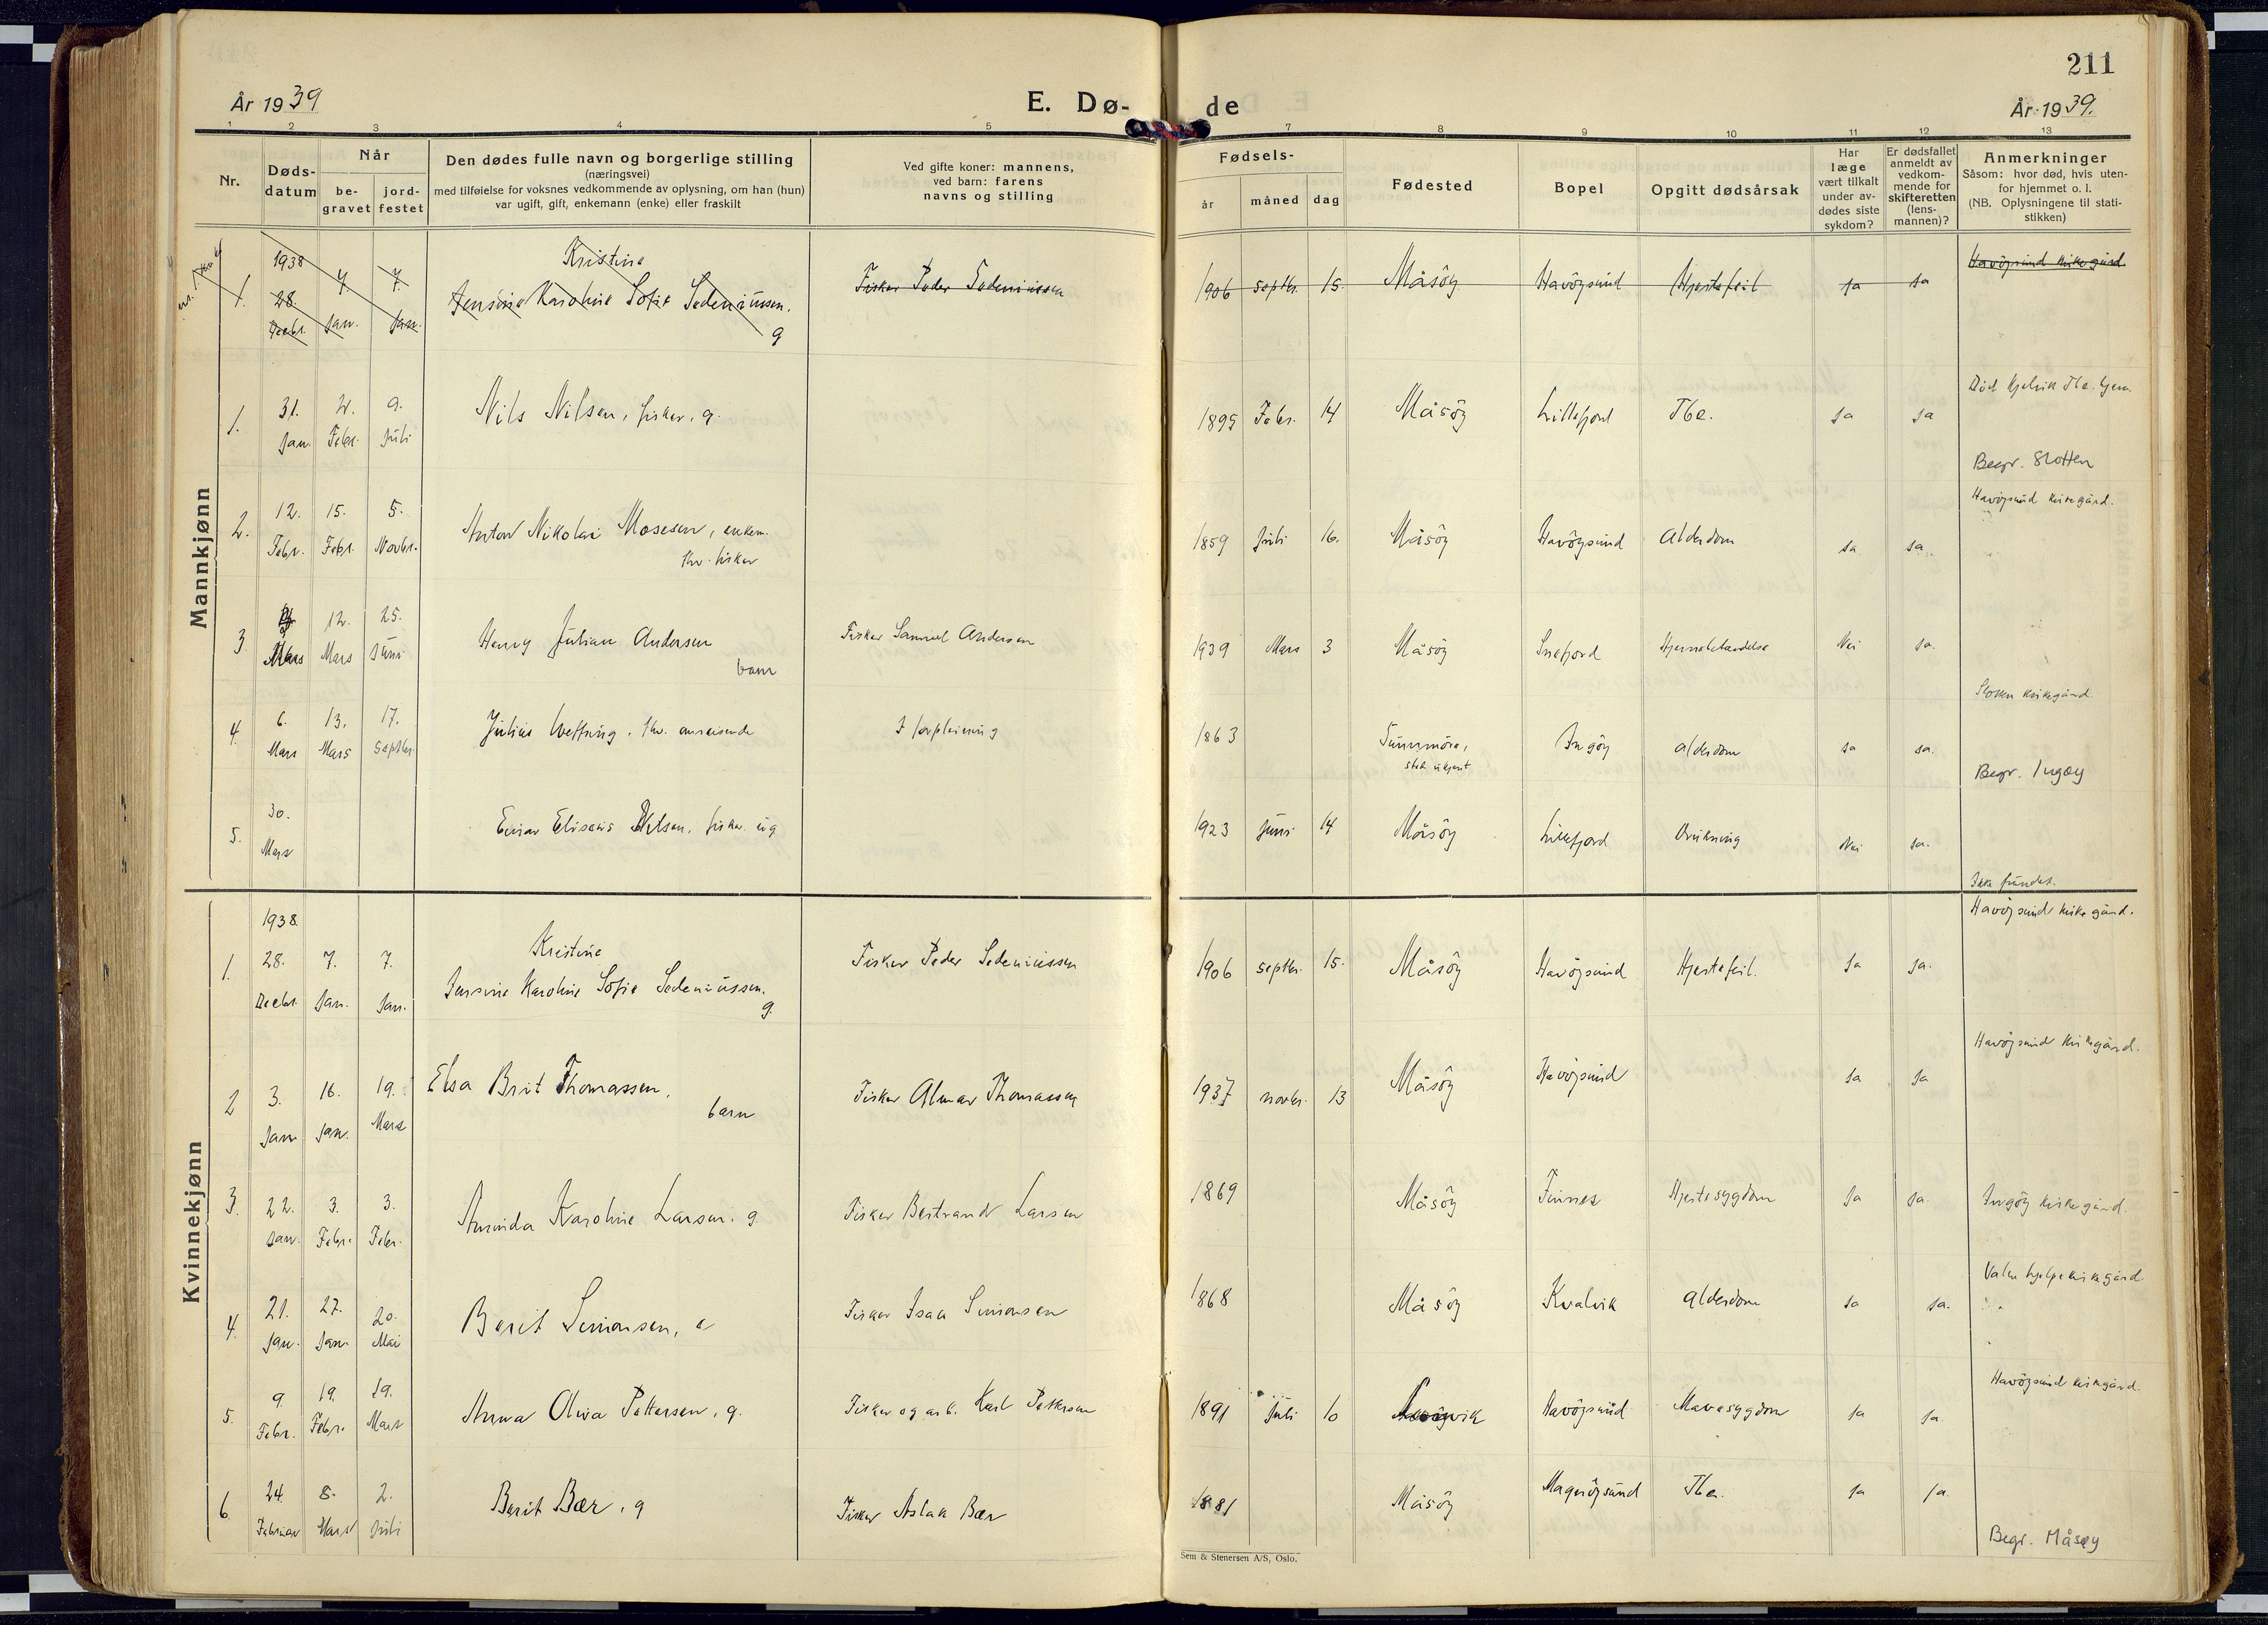 211
År 1939
E. Dø-
de
År 1939.
1 2 3 4 5 7 8 9 10 11 12 13
Nr.
Døds-
datum
Når
be-
gravet
jord-
festet
Den dødes fulle navn og borgerlige stilling
(næringsvei)
med tilføielse for voksnes vedkommende av oplysning, om han (hun)
var ugift, gift, enkemann (enke) eller fraskilt
Ved gifte koner: mannens,
ved barn: farens
navns og stilling
Fødsels-
år
måned
dag
Fødested
Bopel
Opgitt dødsårsak
Har
læge
vært tilkalt
under av-
dødes siste
sykdom?
Er dødsfallet
anmeldt av
vedkom-
mende for
skifteretten
(lens-
mannen)?
Anmerkninger
Såsom: hvor død, hvis uten-
for hjemmet o. l.
(NB. Oplysningene til stati-
stikken)
Mannkjønn
1. 1938 28. Decbr. 7. Jan. 7. Jan. Kristine
Jensine Karoline Sofie Sedeniussen. g
Fisker Peder Sedeniussen 1906 septbr. 15. Måsöy Havöysund Hjertefeil Ja Ja Havöysund kirkegård
1. 31. Jan. 2. Febr. 9. Juli Nils Nilsen, fisker, g. 1895 Febr. 14 Måsöy Lillefjord Tbc. Ja Ja Död Kjelvik Tbc. hjem
Begr. Slotten
2. 12. Febr. 15. Febr. 5. Novbr. Anton Nikolai Mosesen, enkem.
fhv. fisker 1859 Juli 16. Måsöy Havöysund Alderdom Ja Ja. Havöysund kirkegård.
3 Mars 12. Mars 25. Juni Henry Julian Andersen
barn Fisker Samuel Andersen 1939 Mars 3 Måsöy Snefjord Hjernebetendelse Nei Ja. Slotten kirkegård.
4. 6. Mars 13. Mars 17. Septbr. Julius Wefring, fhv. omreisende I forpleining 1863 Sunnmöre,
sted ukjent Ingöy Alderdom Ja Ja. Begr. Ingøy
5. 30. Mars Einar Elisæus Nilsen, fisker ug 1923 Juni 14 Måsöy Lillefjord Drukning Nei Ja. Ikke fundet.
Kvinnekjønn
1. 1938 28. Decbr. 7. Jan. 7. Jan. Kristine
Jensine Karoline Sofie Sedeniussen. g.
Fisker Peder Sedeniussen 1906 septbr. 15. Måsöy Havöysund Hjertefeil. Ja Ja. Havöysund kirkegård.
2 3. Jan. 16. Jan. 19. Mars Elsa Brit Thomassen.
barn Fisker Almar Thomassen 1937 novbr. 13 Måsöy Havöysund Ja Ja Havöysund kirkegård.
3. 22. Jan. 3. Febr. 3. Febr. Aminda Karoline Larsen. g. Fisker Bertrand Larsen 1869 Måsöy Finnes Hjertesygdom Ja Ja. Ingöy kirkegård.
4. 21. Jan. 27. Jan. 20. Mai Berit Simonsen, e Fisker Isak Simonsen 1868 Måsöy Kvalvik Alderdom Ja Ja. hjelpekirkegård
5. 9. Febr. 19. Febr. 19. Mars Anna Olava Pettersen, g. Fisker og arb. Karl Pettersen 1891 Juli 10 Havöysund Mavesygdom Ja Ja. Havöysund kirkegård.
6 24. Februar 8. Mars 2. Juli Berit Bær, g Fisker Aslak Bær 1881 Måsöy Magerøysund Tbc. Ja Ja. Begr. Måsøy
Sem & Stenersen A/S, Oslo.